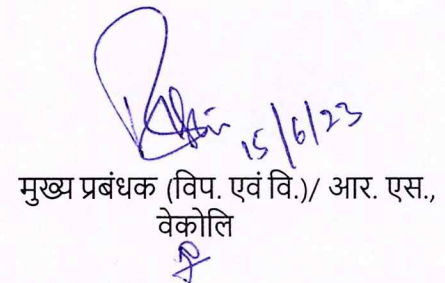 15/6/23
मुख्य प्रबंधक (विप. एवं वि.)/ आर. एस.,
वेकोलि